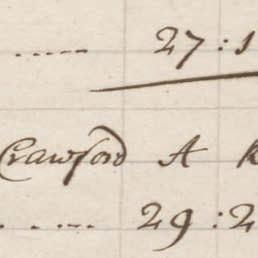 ..... 27:1
Crawford A K
. . ... 29:2